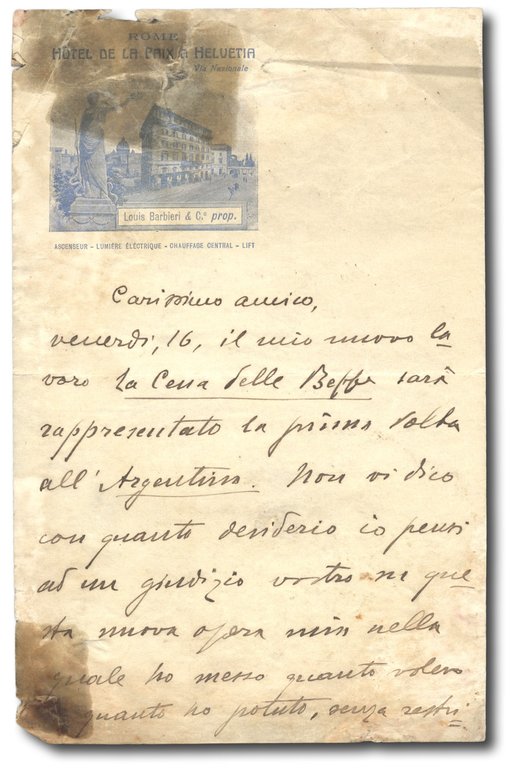 ROME
HÔTEL DE LA PAIX & HELVETIA
Via Nazionale
Louis Barbieri & C.º prop.
ASCENSEUR – LUMIÈRE ÉLECTRIQUE – CHAUFFAGE CENTRAL – LIFT
Carissimo amico,
venerdì, 16, il mio nuovo la
voro La Cena delle Beffe sarà
rappresentato la prima volta
all'Argentina. Non vi dico
con quanto desiderio io pensi
ad un giudizio vostro su que
sta nuova opera mia nella
quale ho messo quanto volevo
quanto ho potuto, senza restri